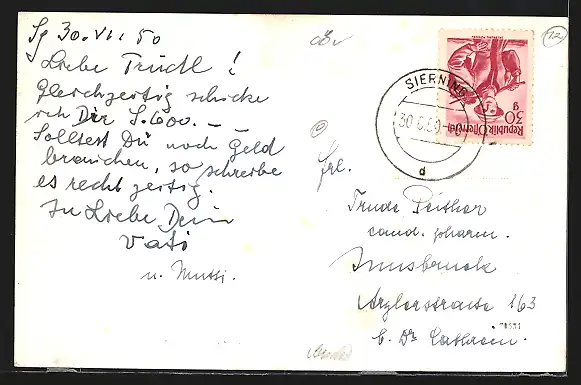 Sg 30.VI.50
Liebe Trudl!
Gleichzeitig schicke
ich Dir S.600.-
Solltest Du noch Geld
brauchen, so schreibe
es rechtzeitig.
In Liebe Dein
Vati
u. Mutti.
12
SIERNING
30.6.50
d
30 g
Republik Österreich
Frl.
Trude Peither
cand. pharm.
Innsbruck
Arzlerstrasse 163
b. Dr.